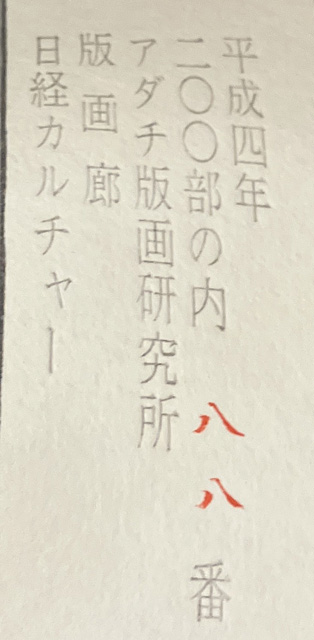 平成四年
二〇〇部の内 八八番
アダチ版画研究所
版画廊
日経カルチャー